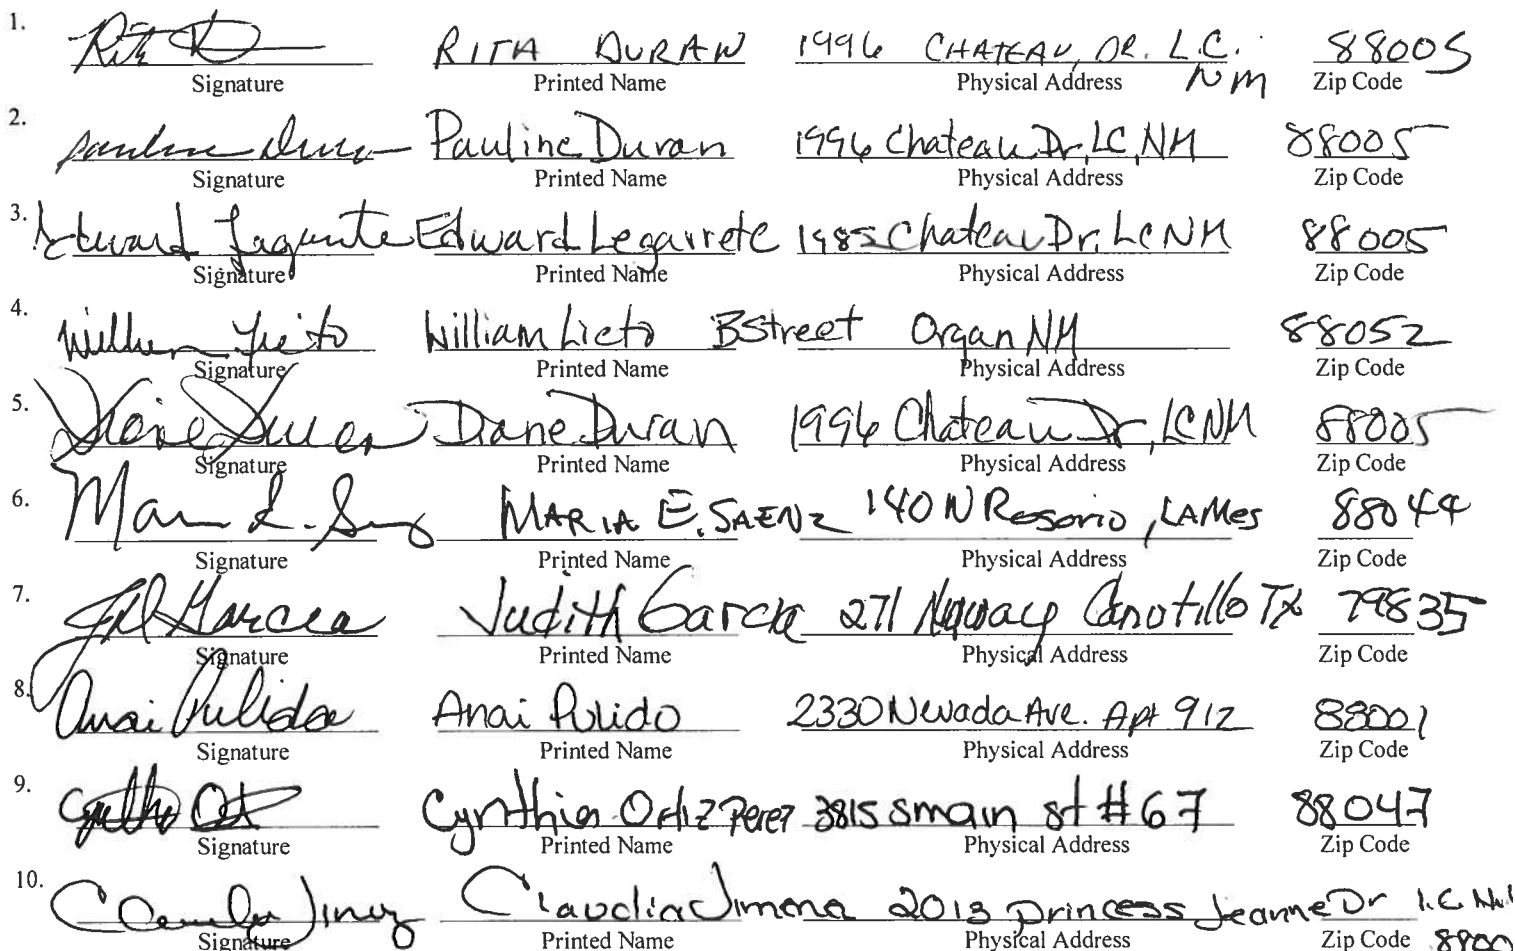 1. Rita D RITA DURAN 1996 CHATEAU, DR. L.C. 88005
Signature Printed Name Physical Address NM Zip Code
2. Pauline Duran Pauline Duran 1996 Chateau Dr, LC, NM 88005
Signature Printed Name Physical Address Zip Code
3. Edward Legarrete Edward Legarrete 1985 Chateau Dr, LC NM 88005
Signature Printed Name Physical Address Zip Code
4. William Lieto William Lieto B Street Organ NM 88052
Signature Printed Name Physical Address Zip Code
5. Diane Duran Diane Duran 1996 Chateau Dr, LC NM 88005
Signature Printed Name Physical Address Zip Code
6. Maria E. MARIA E. SAENZ 140 N Rosorio, LAMes 88044
Signature Printed Name Physical Address Zip Code
7. Garcia Judith Garcia 271 Canutillo TX 79835
Signature Printed Name Physical Address Zip Code
8. Anai Pulido Anai Pulido 2330 Nevada Ave. Apt 912 88001
Signature Printed Name Physical Address Zip Code
9. Cynthia Ortiz Perez 3815 S main st #67 88047
Signature Printed Name Physical Address Zip Code
10. Claudia Claudia Jimena 2013 princess Jeanne Dr L.C. NM
Signature Printed Name Physical Address Zip Code 8800